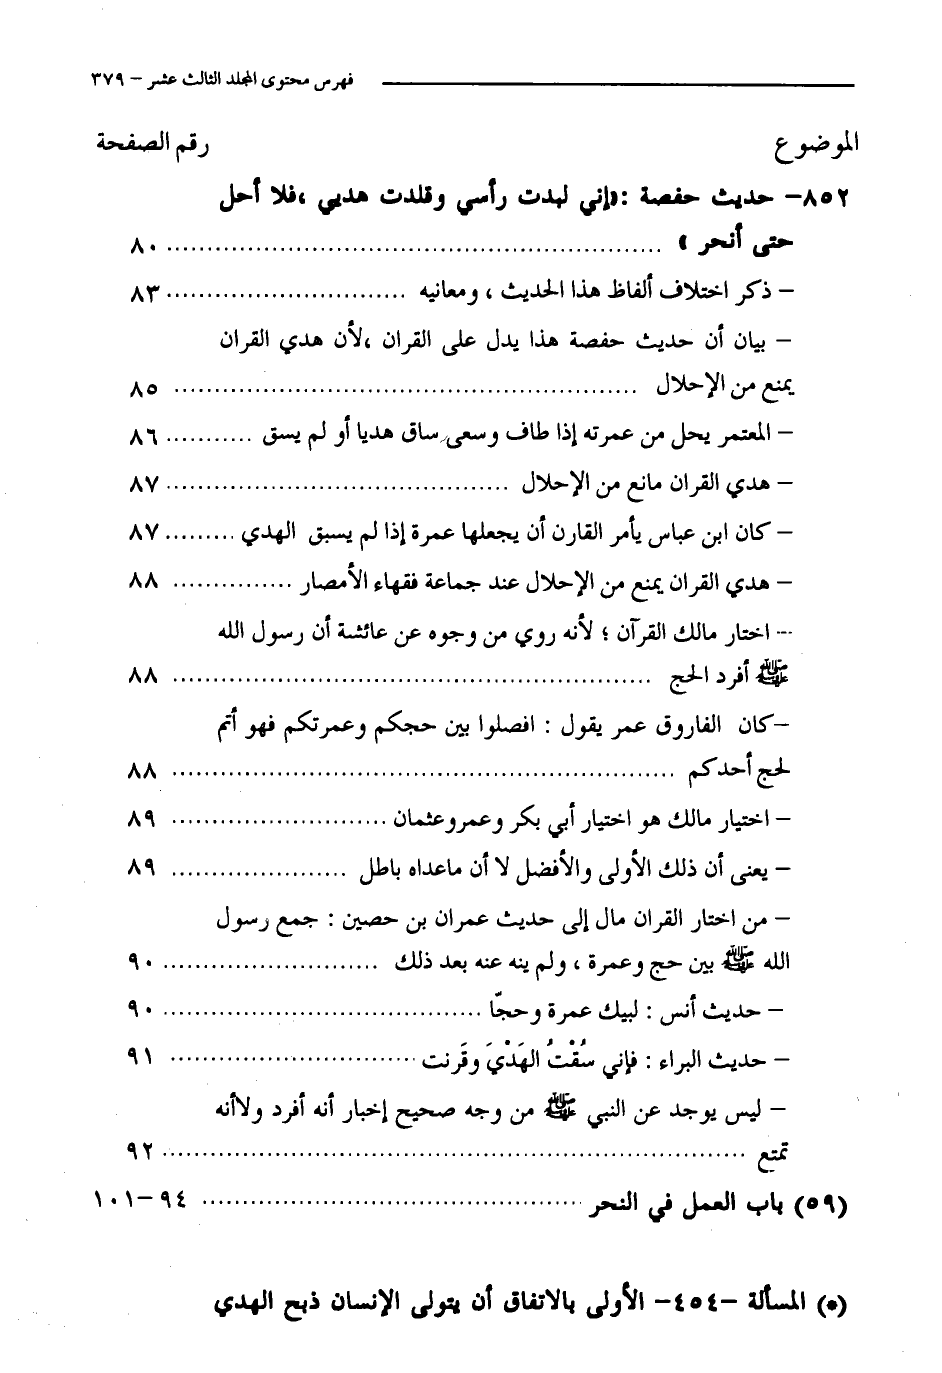 فهرس محتوى المجلد الثالث عشر – ٣٧٩
الموضوع رقم الصفحة
٨٥٢– حديث حفصة : «إني لبدت رأسي وقلدت هديي ،فلا أحل
حتى أنحر » ........................ ٨٠
– ذكر اختلاف ألفاظ هذا الحديث ، ومعانيه ........................ ٨٣
– بيان أن حديث حفصة هذا يدل على القران ،لأن هدي القران
يمنع من الإحلال ........................ ٨٥
– المعتمر يحل من عمرته إذا طاف وسعى ساق هديا أو لم يسق ........... ٨٦
– هدي القران مانع من الإحلال ........................ ٨٧
– كان ابن عباس يأمر القارن أن يجعلها عمرة إذا لم يسبق الهدي ......... ٨٧
– هدي القران يمنع من الإحلال عند جماعة فقهاء الأمصار ............... ٨٨
– اختار مالك القرآن ؛ لأنه روي من وجوه عن عائشة أن رسول الله
ﷺ أفرد الحج ........................ ٨٨
–كان الفاروق عمر يقول : افصلوا بين حجكم وعمرتكم فهو أتم
لحج أحدكم ........................ ٨٨
– اختيار مالك هو اختيار أبي بكر وعمروعثمان ........................ ٨٩
– يعنى أن ذلك الأولى والأفضل لا أن ماعداه باطل ...................... ٨٩
– من اختار القران مال إلى حديث عمران بن حصين : جمع رسول
الله ﷺ بين حج وعمرة ، ولم ينه عنه بعد ذلك ........................ ٩٠
– حديث أنس : لبيك عمرة وحجّا ........................ ٩٠
– حديث البراء : فإني سُقْتُ الهَدْيَ وقَرنت ........................ ٩١
– ليس يوجد عن النبي ﷺ من وجه صحيح إخبار أنه أفرد ولاأنه
تمتع ........................ ٩٢
(٥٩) باب العمل في النحر ........................ ٩٤–١٠١
(•) المسألة –٤٥٤– الأولى بالاتفاق أن يتولى الإنسان ذبح الهدي